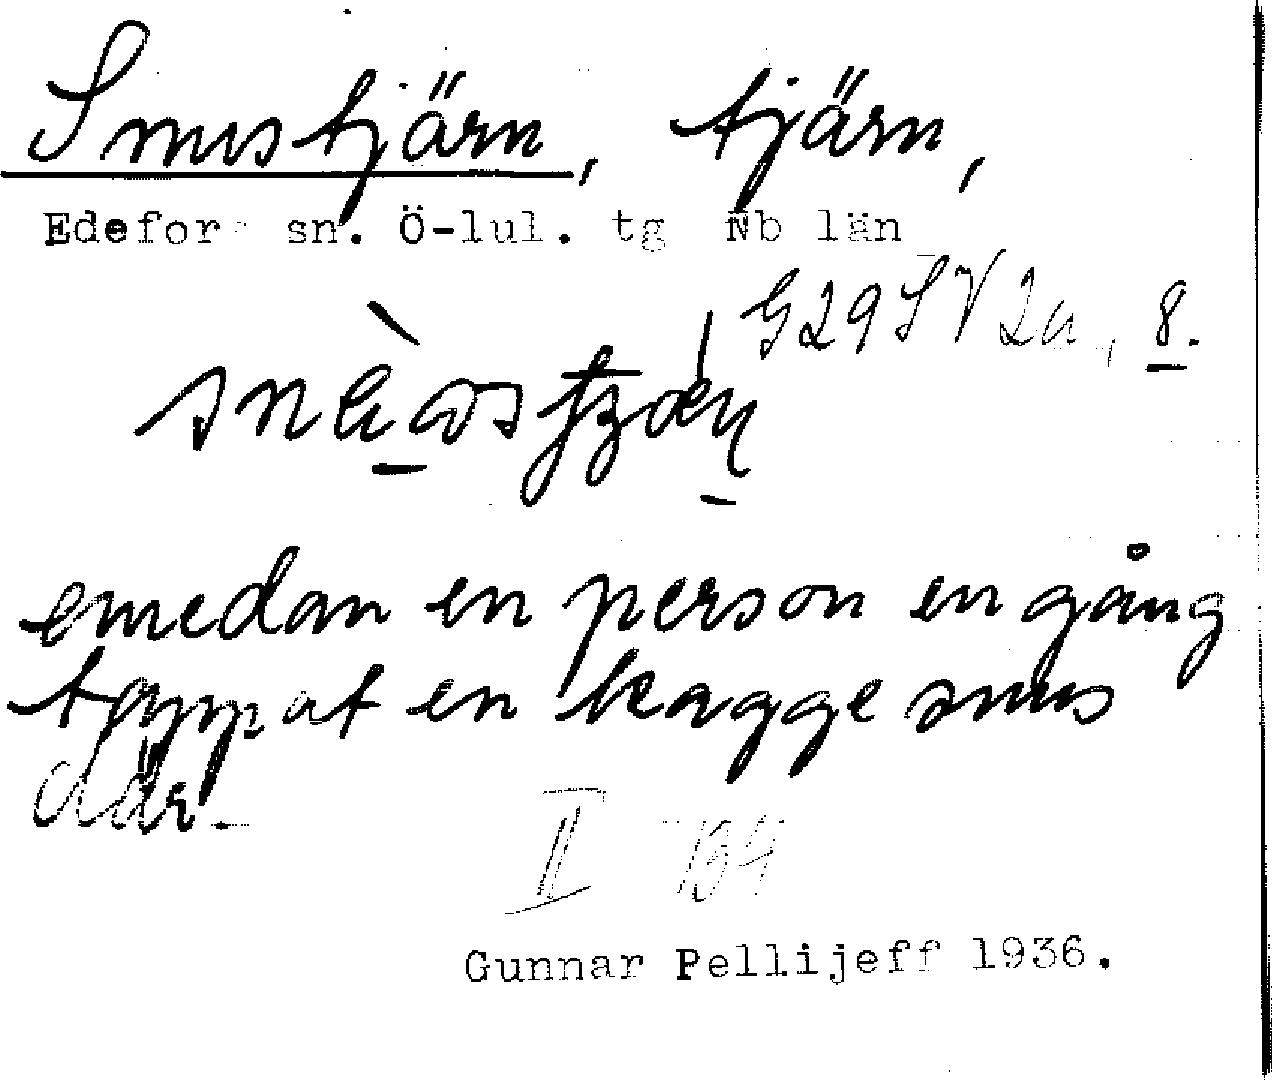 Snustjärn, tjärn,
Edefors sn. Ö-lul. tg Nb län
G29SV2a, 8.
emedan en person en gång
tappat en kagge snus
där.
II B4
Gunnar Pellijeff 1936.